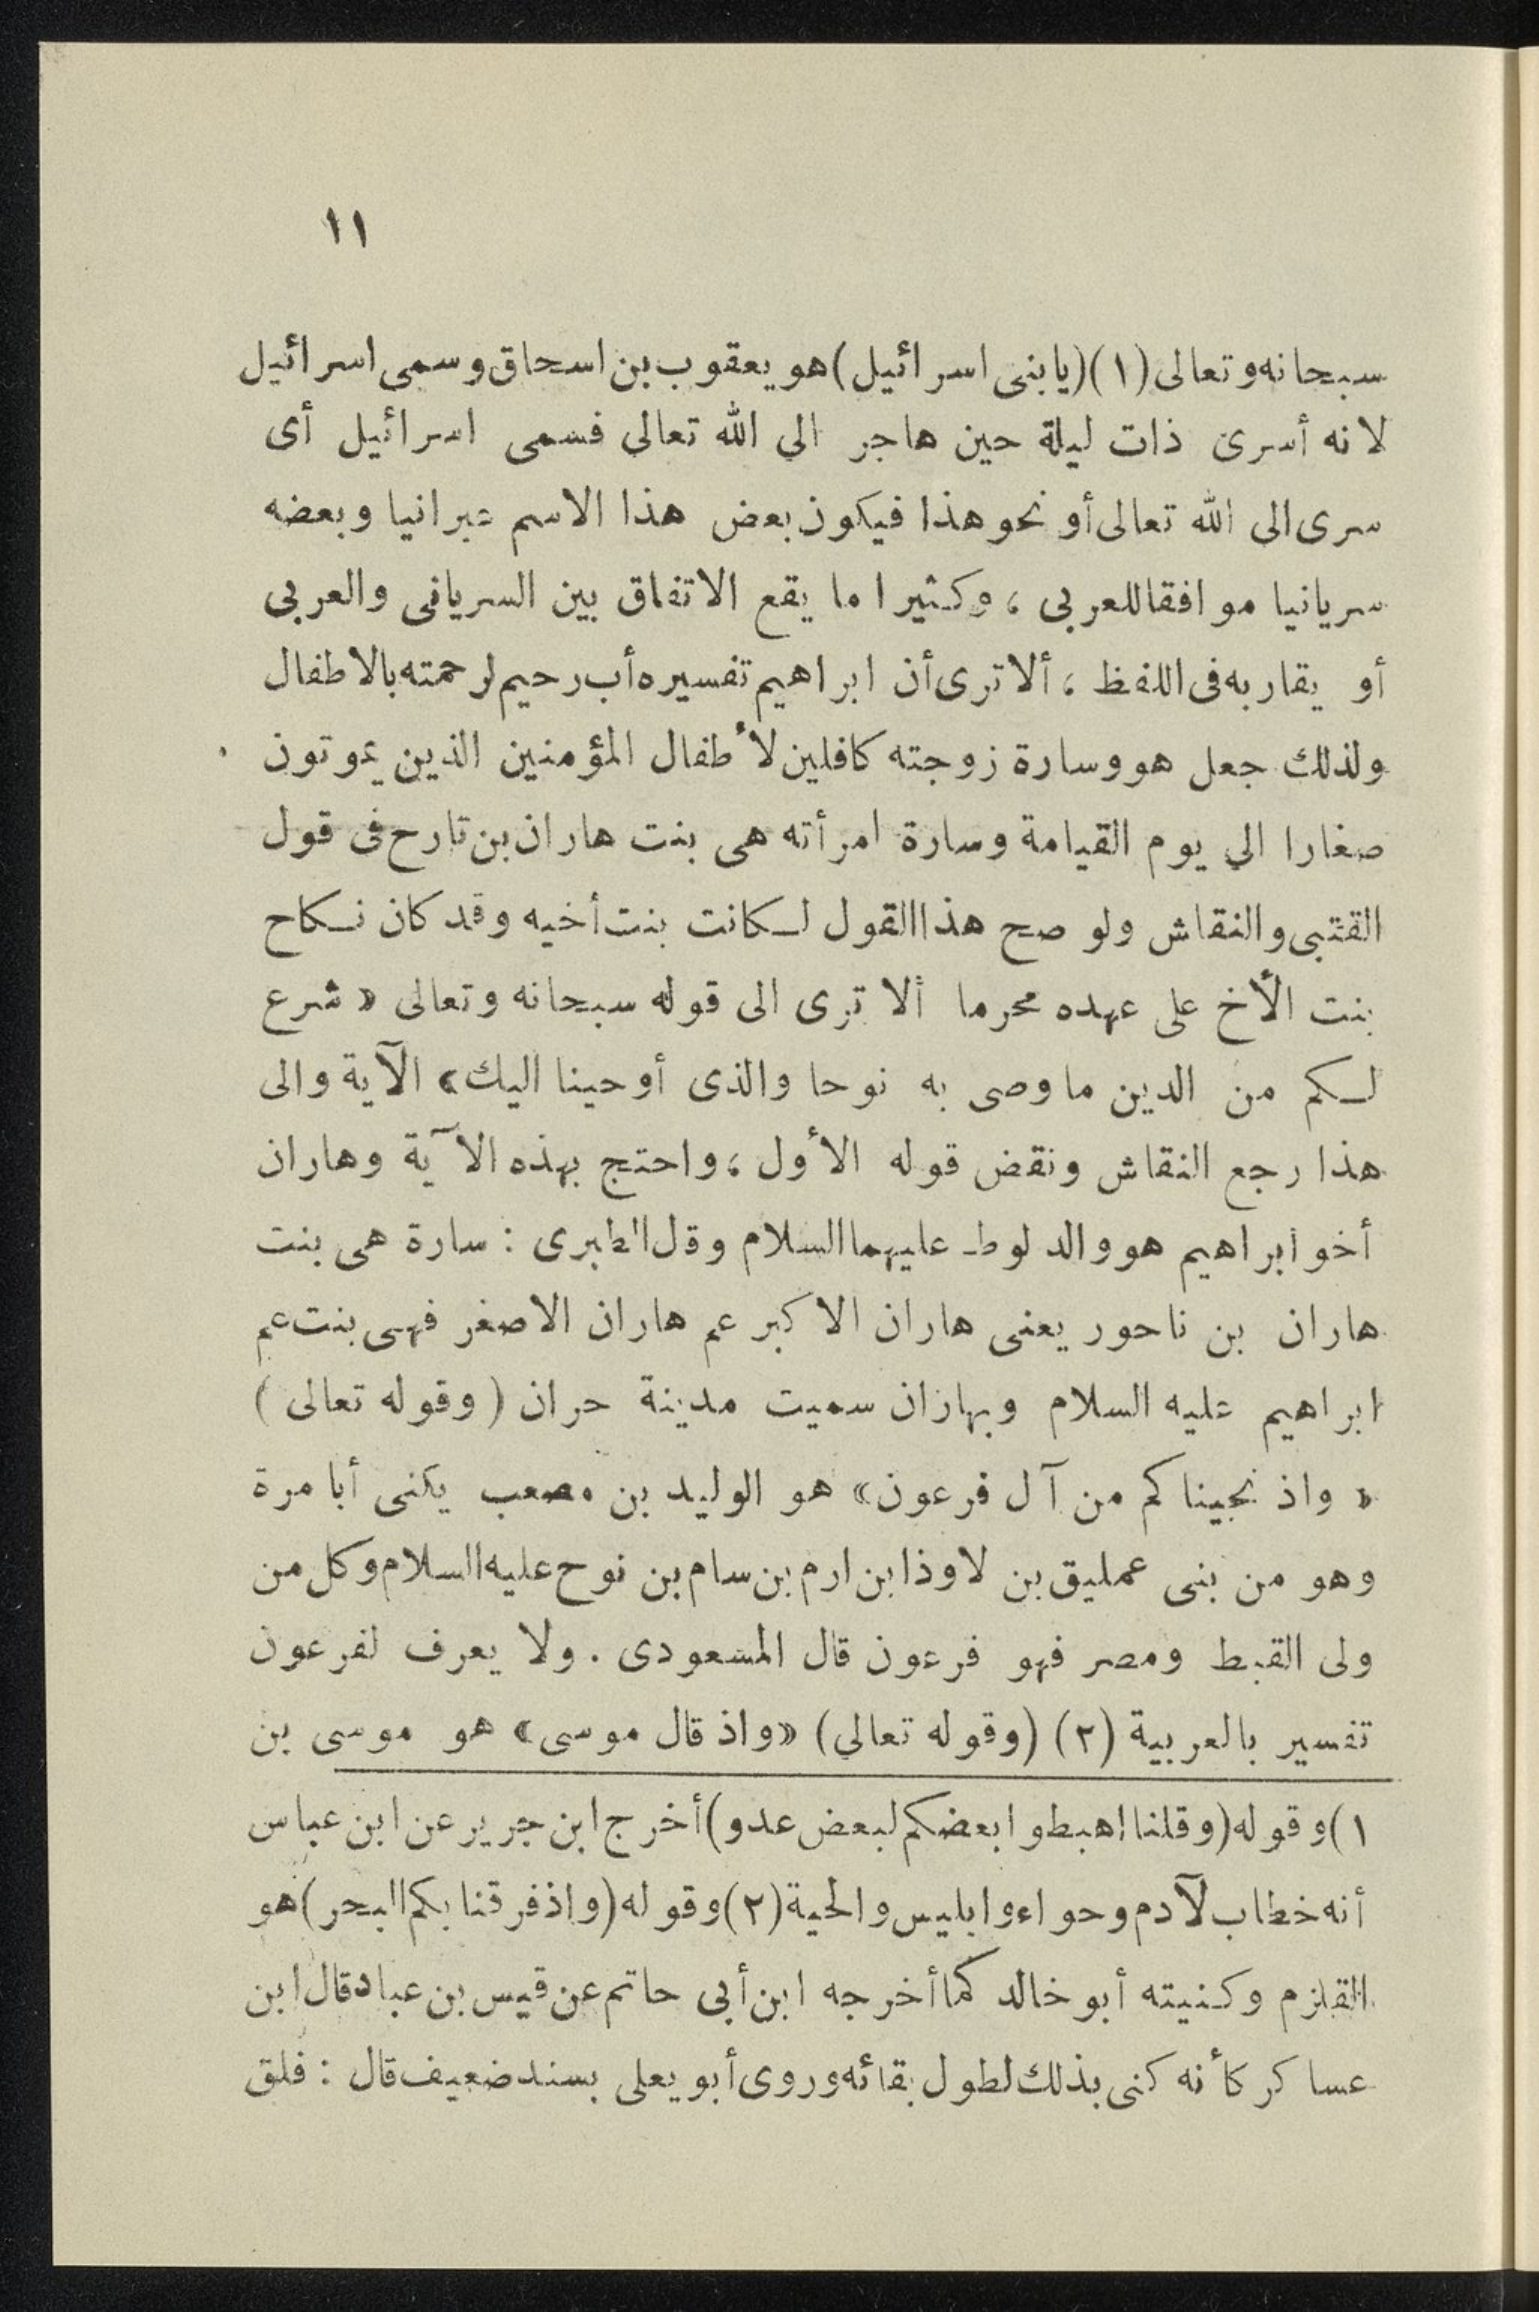 ١١
سبحانه وتعالى (١) (يابنى اسرائيل) هو يعقوب بن اسحاق وسمى اسرائيل
لانه أسرى ذات ليلة حين هاجر الى الله تعالى فسمى اسرائيل أى
سرى الى الله تعالى أو نحو هذا فيكون بعض هذا الاسم عبرانيا وبعضه
سريانيا موافقا للعربى ، وكثيرا ما يقع الاتفاق بين السريانى والعربى
أو يقاربه فى اللفظ ، ألا ترى أن ابراهيم تفسيره أب رحيم لرحمته بالاطفال
ولذلك جعل هو وسارة زوجته كافلين لأطفال المؤمنين الذين يموتون
صغارا الى يوم القيامة وسارة امرأته هى بنت هاران بن تارح فى قول
القتبى والنقاش ولو صح هذا القول لكانت بنت أخيه وقد كان نكاح
بنت الأخ على عهده محرما ألا ترى الى قوله سبحانه وتعالى « شرع
لكم من الدين ما وصى به نوحا والذى أوحينا اليك » الآية والى
هذا رجع النقاش ونقض قوله الأول ، واحتج بهذه الآية وهاران
أخو ابراهيم هو والد لوط عليهما السلام وقل الطبرى : سارة هى بنت
هاران بن ناحور يعنى هاران الاكبر عم هاران الاصغر فهى بنت عم
ابراهيم عليه السلام وبهاران سميت مدينة حران ( وقوله تعالى )
« واذ نجيناكم من آل فرعون » هو الوليد بن مصعب يكنى أبا مرة
وهو من بنى عمليق بن لاوذا بن ارم بن سام بن نوح عليه السلام وكل من
ولى القبط ومصر فهو فرعون قال المسعودى . ولا يعرف لفرعون
تفسير بالعربية (٢) (وقوله تعالى) «واذ قال موسى» هو موسى بن
١) وقوله (وقلنا اهبطوا بعضكم لبعض عدو) أخرج ابن جرير عن ابن عباس
أنه خطاب لآدم وحواء وابليس والحية (٢) وقوله (واذ فرقنا بكم البحر) هو
القلزم وكنيته أبو خالد كما أخرجه ابن أبى حاتم عن قيس بن عباد قال ابن
عساكر كأنه كنى بذلك لطول بقائه وروى أبو يعلى بسند ضعيف قال : فلق